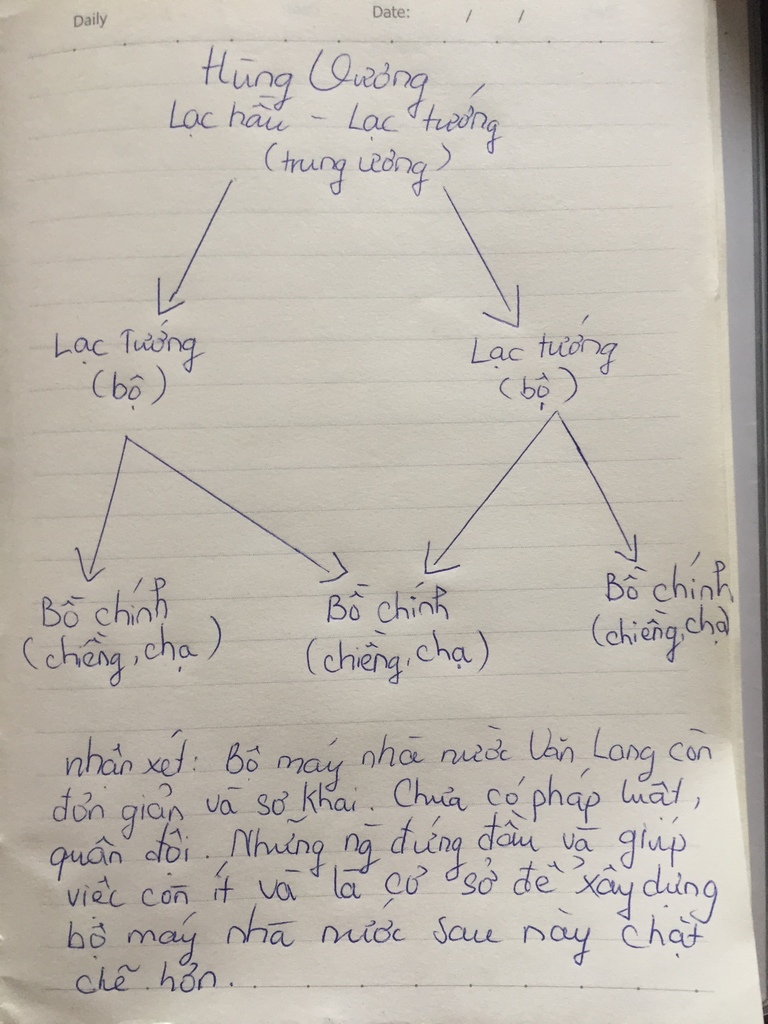 Daily Date: / /
Hùng Vương
Lạc hầu - Lạc tướng
(trung ương)
Lạc Tướng Lạc tướng
(bộ) (bộ)
Bồ chính Bồ chính Bồ chính
(chiềng, chạ) (chiềng, chạ) (chiềng, chạ)
nhận xét: Bộ máy nhà nước Văn Lang còn
đơn giản và sơ khai. Chưa có pháp luật,
quân đội. Những ng đứng đầu và giúp
việc còn ít và là cơ sở để xây dựng
bộ máy nhà nước sau này chặt
chẽ hơn.